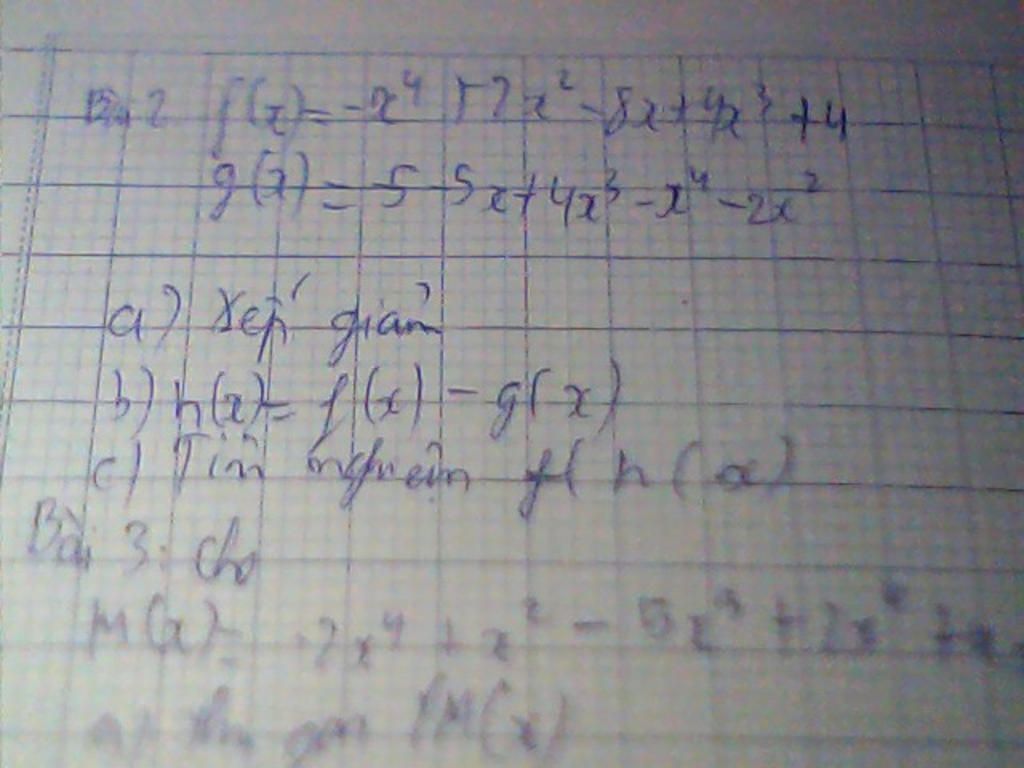 Bài 2 f(x) = -x⁴ + 2x² - 8x + 4x³ + 4
g(x) = 5 5x + 4x³ - x⁴ - 2x²
a) Xếp giảm
b) h(x) = f(x) - g(x)
c) Tìm nghiệm h(x)
Bài 3: cho
M(x) = 2x⁴ + x² -
a) thu gọn M(x)